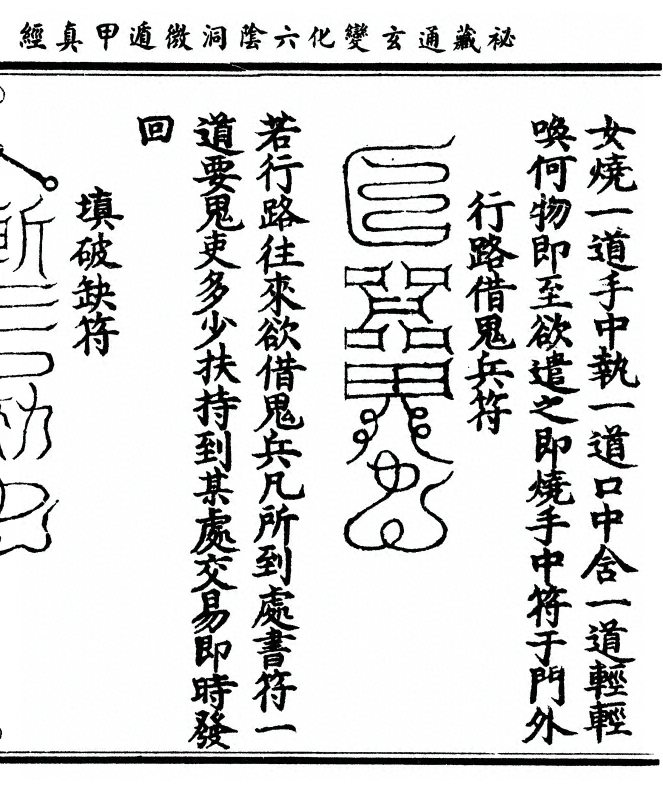 祕藏通玄變化六陰洞微遁甲真經
女燒一道手中執一道口中含一道輕輕
喚何物即至欲遣之即燒手中符于門外
行路借鬼兵符
若行路往來欲借鬼兵凡所到處書符一
道要鬼吏多少扶持到某處交易即時發
回
填破缺符